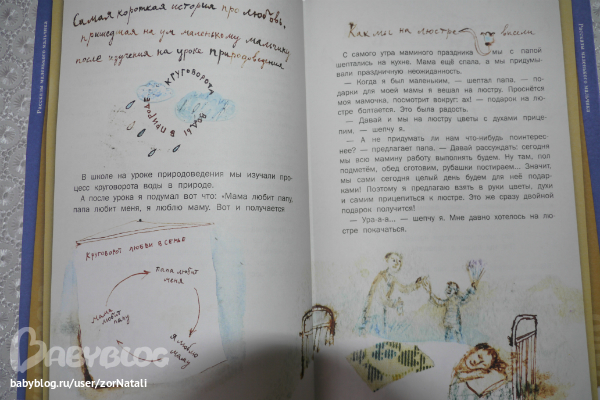 Рассказы маленького мальчика
Самая короткая история про любовь,
пришедшая на ум маленькому мальчику
после изучения на уроке природоведения
КРУГОВОРОТА
ВОДЫ В ПРИРОДЕ
В школе на уроке природоведения мы изучали про-
цесс круговорота воды в природе.
А после урока я подумал вот что: «Мама любит папу,
папа любит меня, я люблю маму. Вот и получается
Круговорот любви в семье
папа любит
меня
Мама
любит
папу
Я люблю
маму
Как мы на люстре висели
С самого утра маминого праздника мы с папой
шептались на кухне. Мама ещё спала, а мы придумы-
вали праздничную неожиданность.
— Когда я был маленьким, — шептал папа, — по-
дарки для моей мамы я вешал на люстру. Проснётся
моя мамочка, посмотрит вокруг: ах! — подарок на лю-
стре болтается. Это была радость.
— Давай и мы на люстру цветы с духами прице-
пим, — шепчу я.
— А не придумать ли нам что-нибудь поинтерес-
нее? — предлагает папа. — Давай рассуждать: сегодня
мы всю мамину работу выполнять будем. Ну там, пол
подметём, обед сготовим, рубашки постираем... Значит,
мы сами сегодня целый день будем для неё подар-
ками! Поэтому я предлагаю взять в руки цветы, духи
и самим прицепиться к люстре. Это же сразу двойной
подарок получится!
— Ура-а-а... — шепчу я. Мне давно хотелось на лю
стре покачаться.
Рассказы маленького мальчика
BABYBLOG
babyblog.ru/user/zorNatali